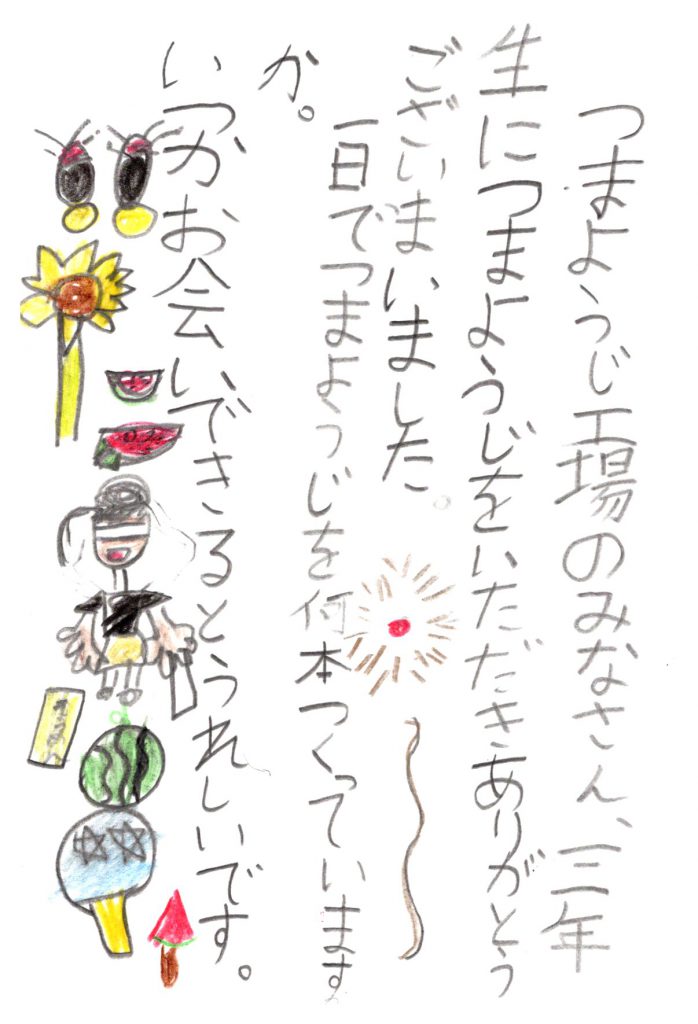 つまようじ工場のみなさん、三年
生につまようじをいただきありがとう
ございまいました。
一日でつまようじを何本つくっています
か。
いつかお会いできるとうれしいです。